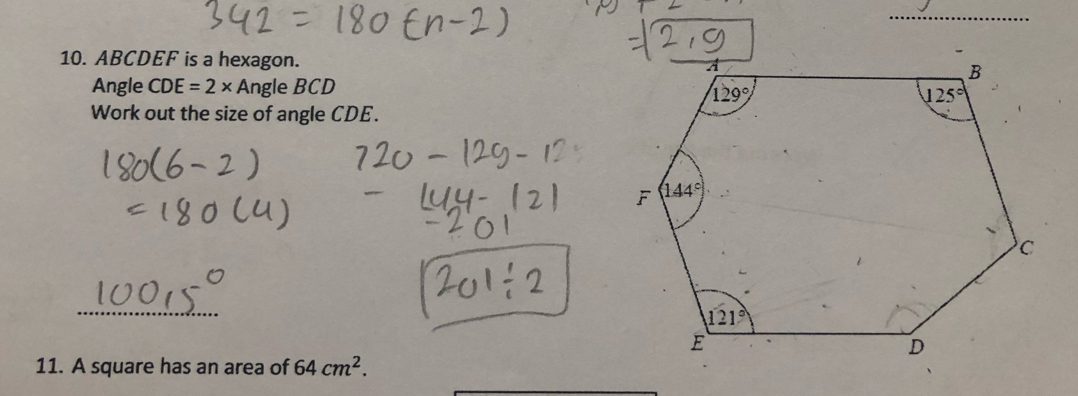 342 = 180 (n-2)
= 2,9
10. ABCDEF is a hexagon.
Angle CDE = 2 × Angle BCD
Work out the size of angle CDE.
180(6-2)
= 180 (4)
100,5°
720 - 129 - 12
- 144 - 121
= 201
201 ÷ 2
A
B
129°
125°
F
144°
C
121°
E
D
11. A square has an area of 64 cm².